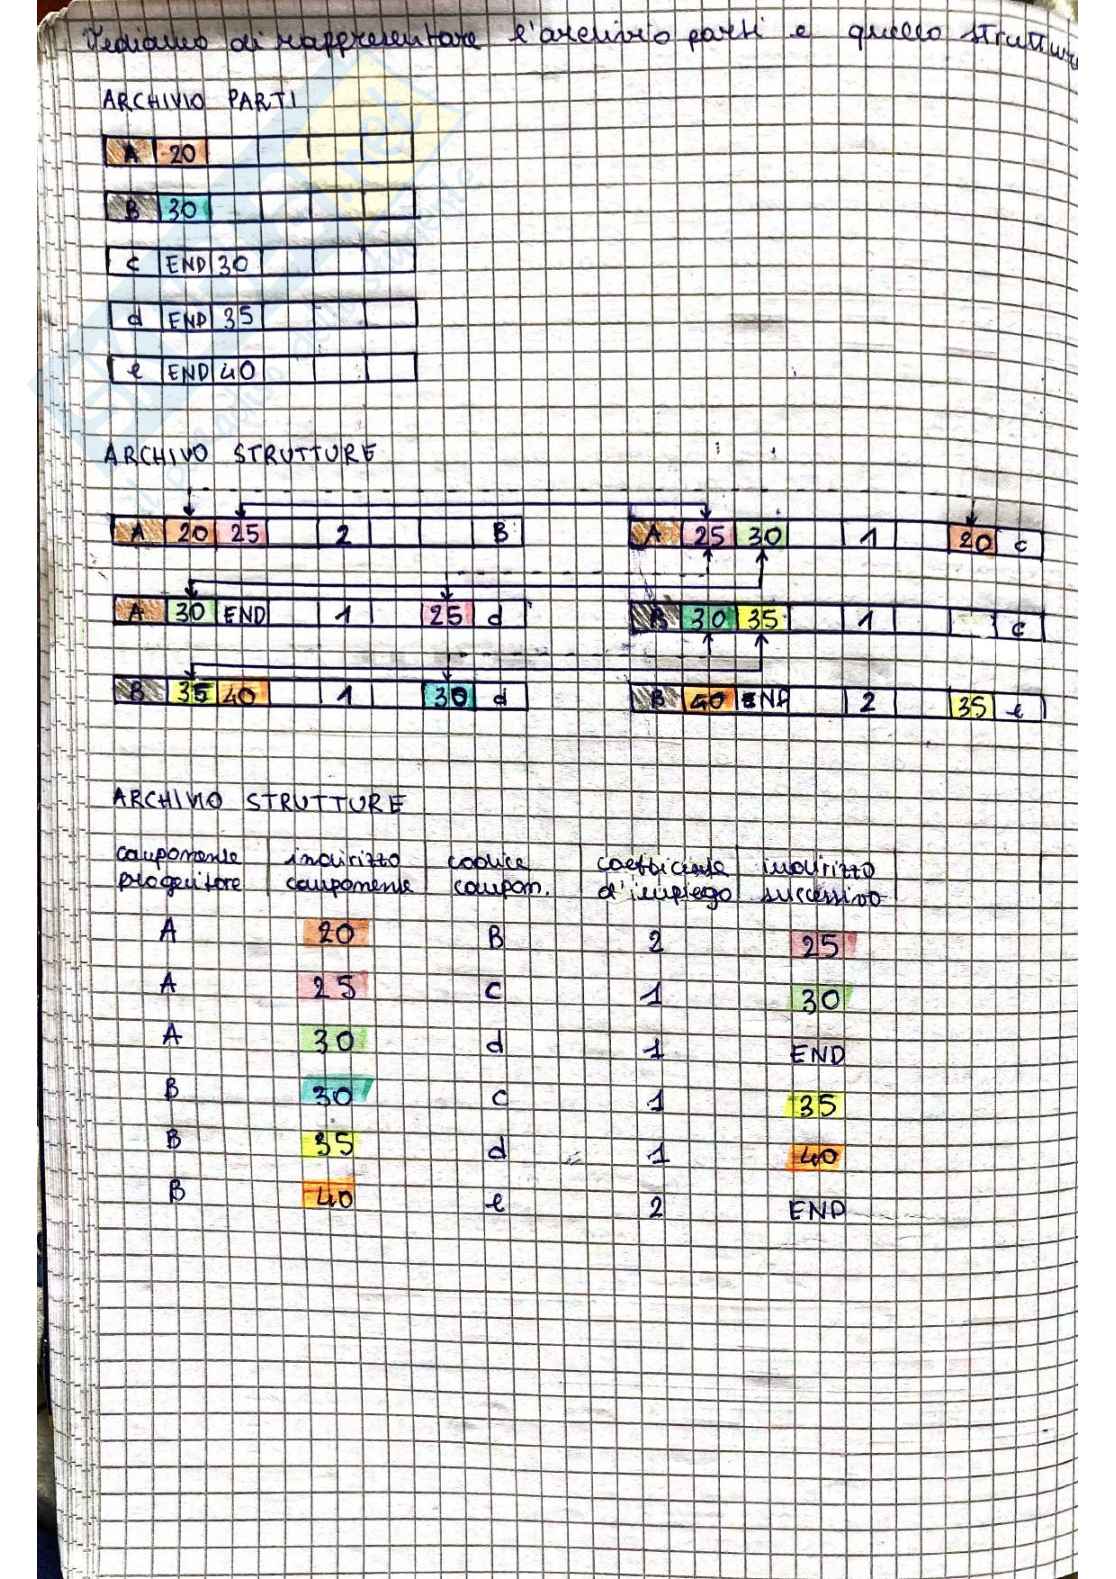 Vediamo di rappresentare l'archivio parti e quello struttur
ARCHIVIO PARTI
A 20
B 30
c END 30
d END 35
e END 40
ARCHIVO STRUTTURE
A 20 25 2 B A 25 30 1 20 c
A 30 END 1 25 d B 30 35 1 c
B 35 40 1 30 d B 40 END 2 35 e
ARCHIVIO STRUTTURE
componente indirizzo codice coefficiente indirizzo
progenitore componente compon. d'impiego successivo
A 20 B 2 25
A 25 c 1 30
A 30 d 1 END
B 30 c 1 35
B 35 d 1 40
B 40 e 2 END